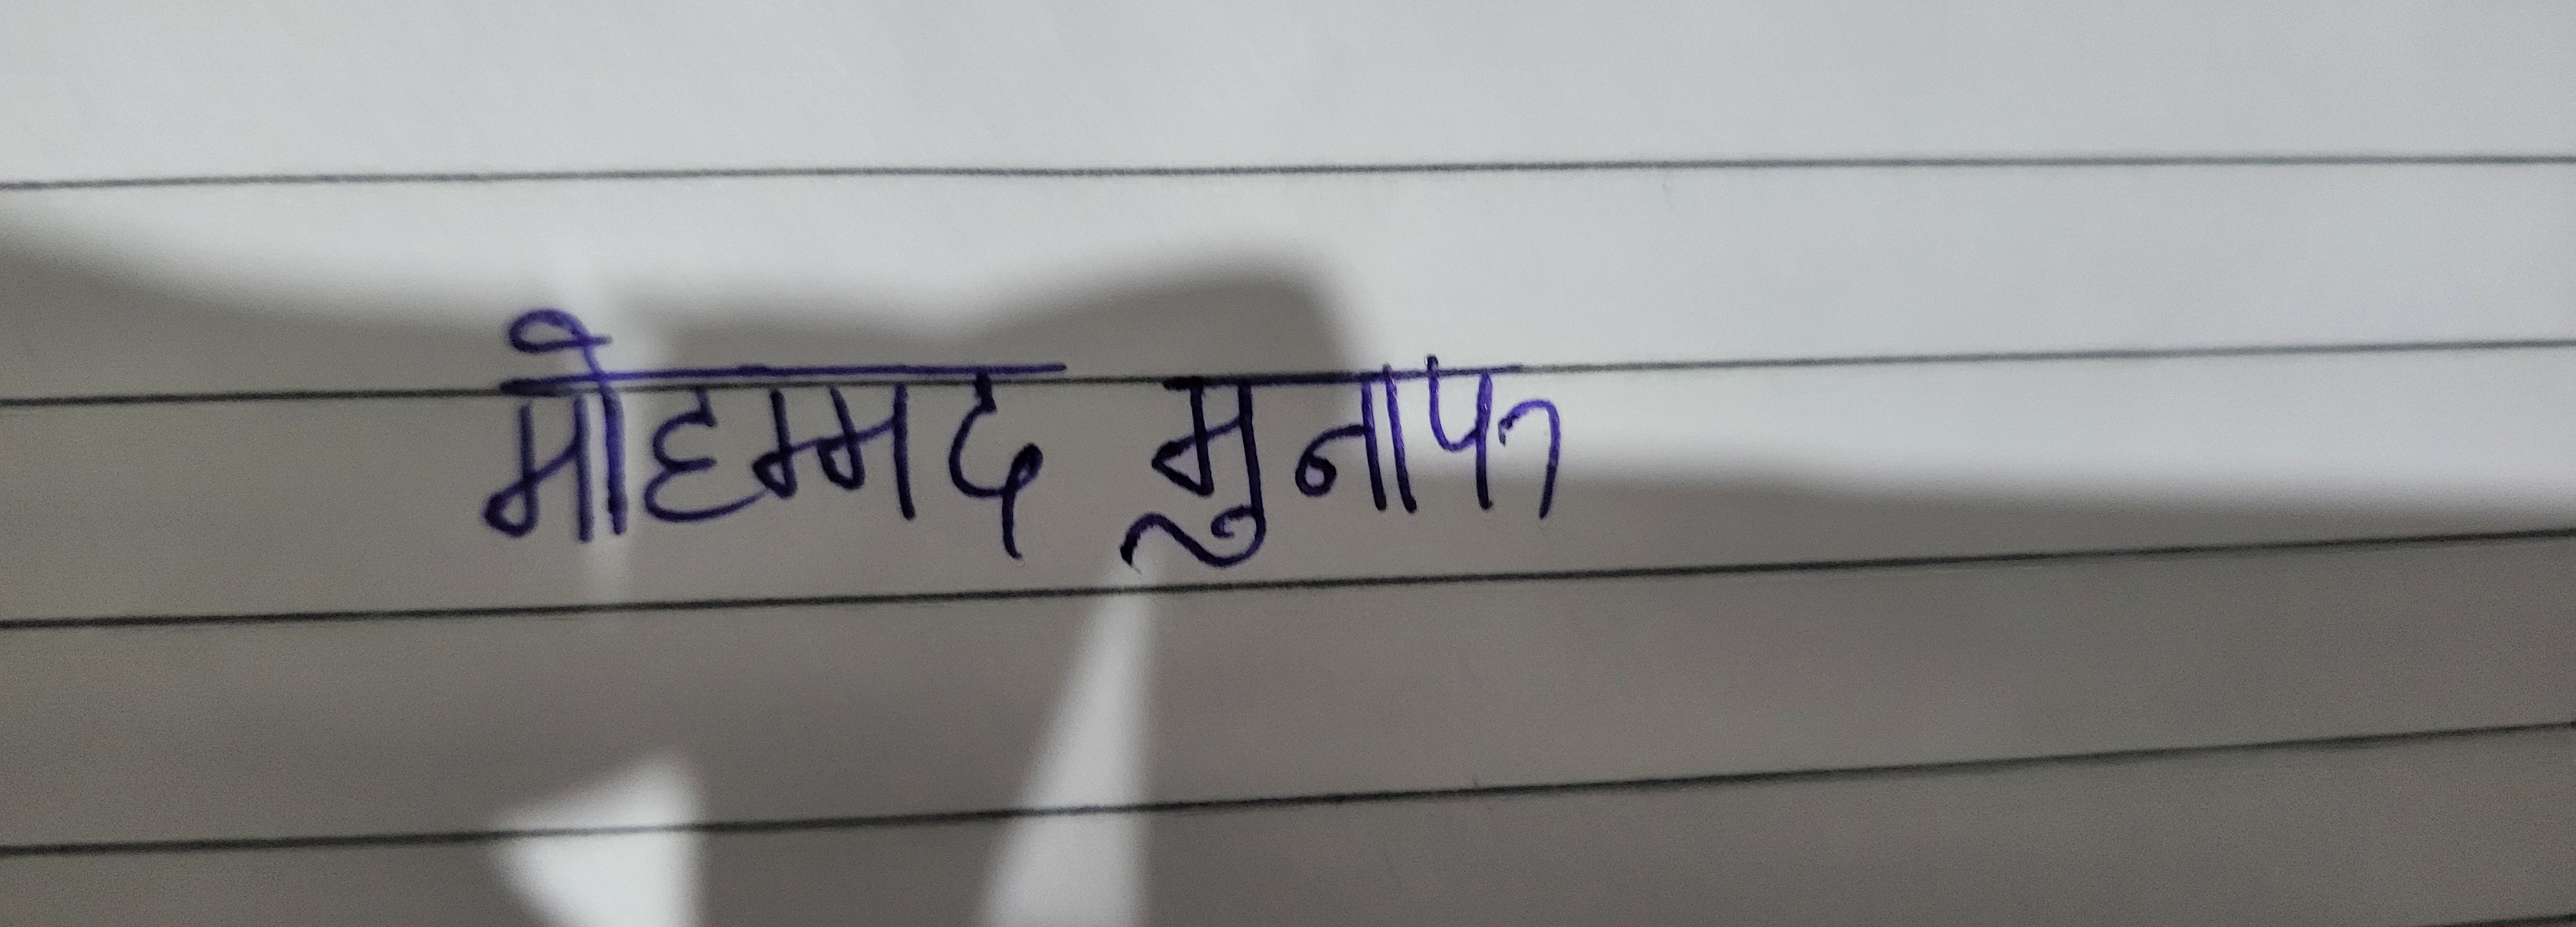 मोहम्मद मुनाफ